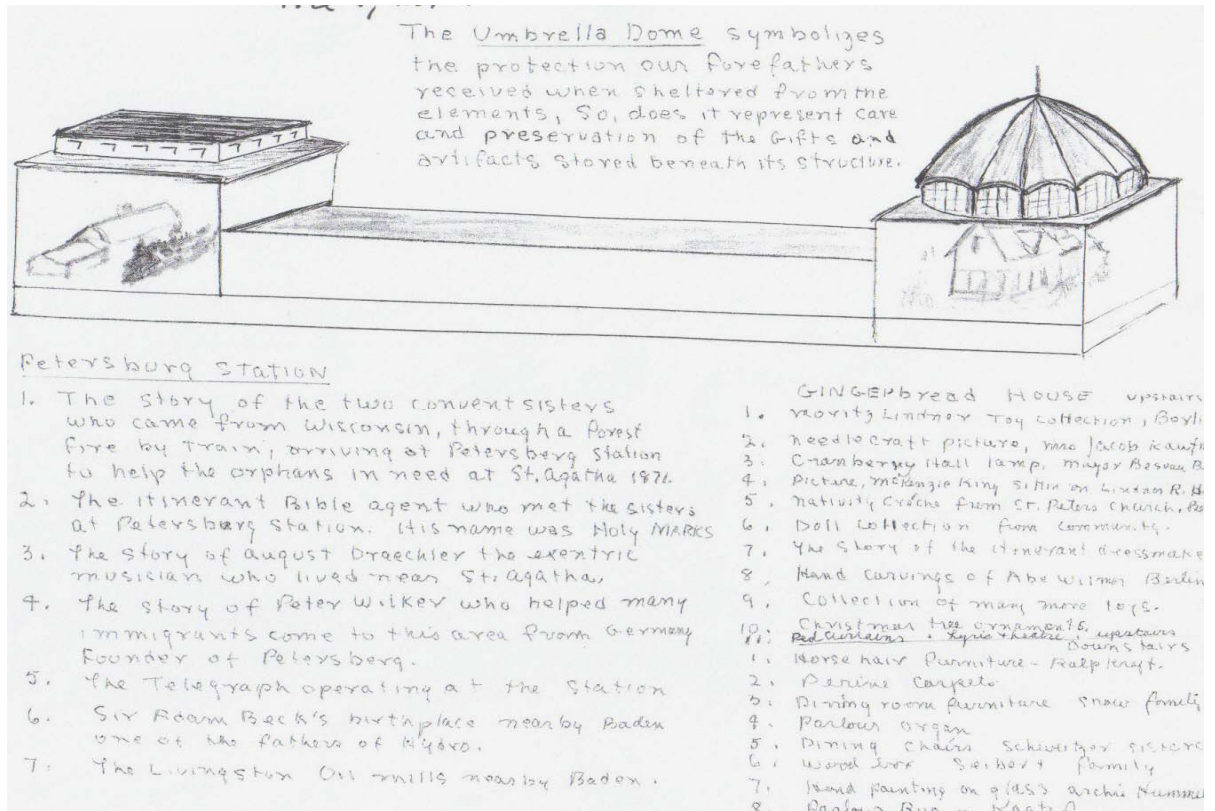 The Umbrella Dome symbolizes
the protection our forefathers
received when sheltered from the
elements, So, does it represent care
and preservation of the Gifts and
artifacts stored beneath its structure.
Petersburg Station
1. The story of the two convent sisters
who came from Wisconsin, through a Forest
fire by Train, arriving at Petersberg Station
to help the orphans in need at St. Agatha 1871
2. The Itinerant Bible agent who met the sisters
at Petersburg Station. His name was Holy MARKS
3. The story of August Draechler the exentric
musician who lived near St. Agatha.
4. The story of Peter Wilker who helped many
immigrants come to this area from Germany
Founder of Petersberg.
5. The Telegraph operating at the Station
6. Sir Adam Beck's birthplace nearby Baden
one of the fathers of Hydro.
7. The Livingston Oil mills nearby Baden.
GINGERbread House upstairs
1. Moritz Lindner Toy collection, Berli
2. needlecraft picture, Mrs Jacob Kaufm
3. Cranberry Hall lamp, mayor B
4. Picture, McKenzie King sittin on Lindner R. H
5. Nativity Crèche from St. Peters Church,
6. Doll collection from community.
7. The Story of the itinerant dressmake
8. Hand Carvings of Abe Wilmer Berlin
9. Collection of many more toys.
10. Christmas tree ornaments.
11. Red curtains, Lyric theatre, upstairs
Downstairs
1. Horse hair Furniture - Ralph Kraft.
2. Perine Carpets
3. Dining room furniture Snow family
4. Parlour organ
5. Dining Chairs Schweitzer sisters
6. Wood box Seibert family
7. Hand painting on glass archie Hummel
8. Parlour Rug -